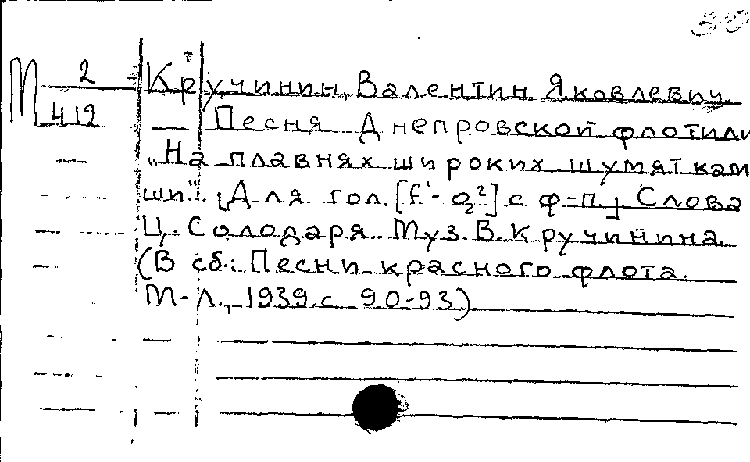 М 2
412
Кручинин, Валентин Яковлевич
— Песня Днепровской флотили
„На плавнях широких шумят кам
ши". [Для гол. [f¹-g²] с ф-п] Слова
Ц. Солодаря. Муз. В. Кручинина.
(В сб.: Песни красного флота.
М-Л., 1939. с 90-93)